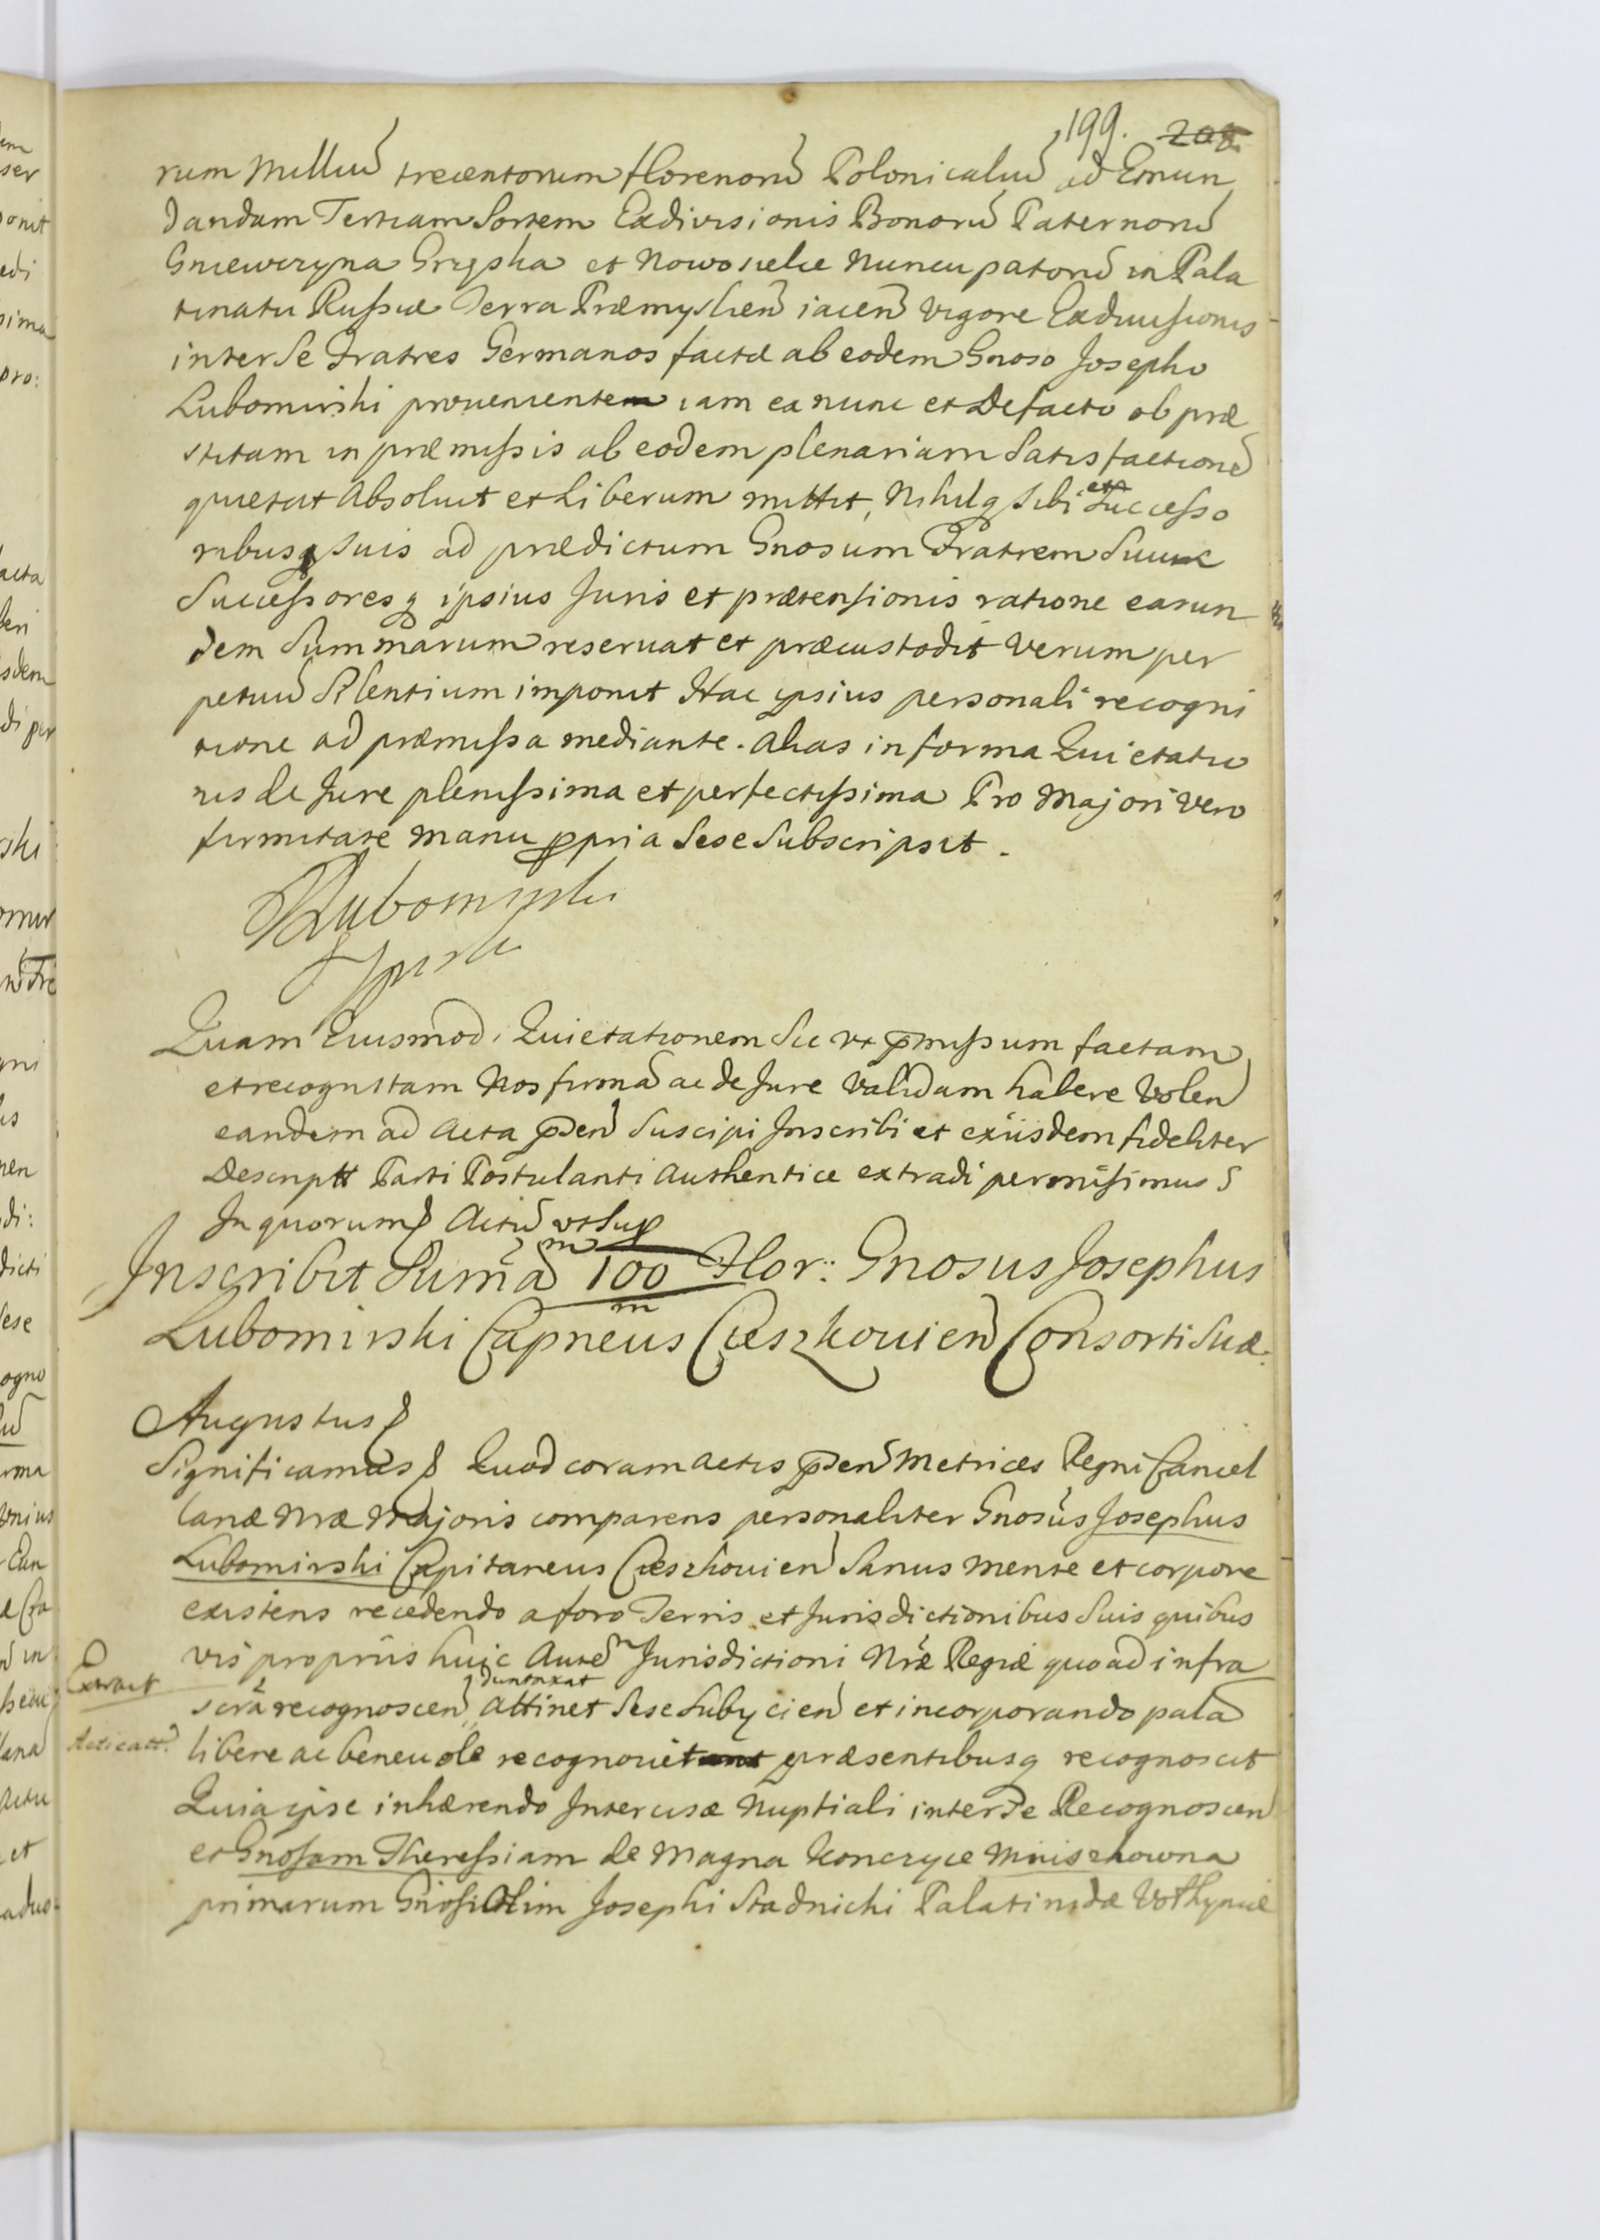 199. 208.
rum Milliũ trecentorum florenorũ Polonicaliũ ad Emun
dandam Tertiam Sortem Exdivisionis Bonorũ Paternorũ
Gniewczyna Grzęska et Nowosielce nuncupatorũ in Pala
tinatu Russiæ Terra Præmyslień iaceń vigore Exdivisionis
inter Se Fratres Germanos factæ ab eodem Gnoso Josepho
Lubomirski provenientem iam ex nunc et Defacto ob præ
stitam in præmissis ab eodem plenariam Satisfactionẽ
quietat Absoluit et Liberum mittit, Nihilq sibi et Successo
ribusq suis ad prædictum Gnosum Fratrem Suum
Successoresq ipsius Juris et prætensionis ratione earun
dem Summarum reseruat et præcustodit verum per
petuũ Silentium imponit Hac ipsius personali recogni
tione ad præmissa mediante. Alias in forma Quietatio
nis de Jure plenissima et perfectissima Pro Majori vero
firmitate manu ppria Sese Subscripsit.
Lubomirski
Quam Eiusmodi Quietationem Sic vt pmissum factam
et recognitam Nos firmã ac de Jure validam habere Voleń
eandem ad Acta pdeń Suscipi Inscribi et exiisdem fideliter
Descriptt Parti Postulanti Authentice extradi permisimus
In quorum Actũ vt Sup
Inscribit Sumã 100 m Flor: Gnosus Josephus
Lubomirski Capneus Cieszkouień Consorti Suæ.
Augustus
Significamus Quod coram actis pdeń Metrices Regni Cancel
lariæ Nræ Majoris comparens personaliter Gnosus Josephus
Lubomirski Capitaneus Cieszkouień Sanus mente et corpore
existens recedendo a foro Terris et Jurisdictionibus Suis quibus
vis propriis huic Autẽ Jurisdictioni Nræ Regiæ quo ad infra
Extract
scrã recognosceń duntaxat attinet Sese Subijcień et incorporando palã
libere ac beneuole recognouit præsentibusq recognoscit
Quia ipse inhærendo Intercisæ Nuptiali inter Se Recognosceń
et Gnosam Theressiam de Magna Konczyce Mniszkowna
primarum Gnosi Olim Josephi Stadnicki Palatinidæ Volhyniæ